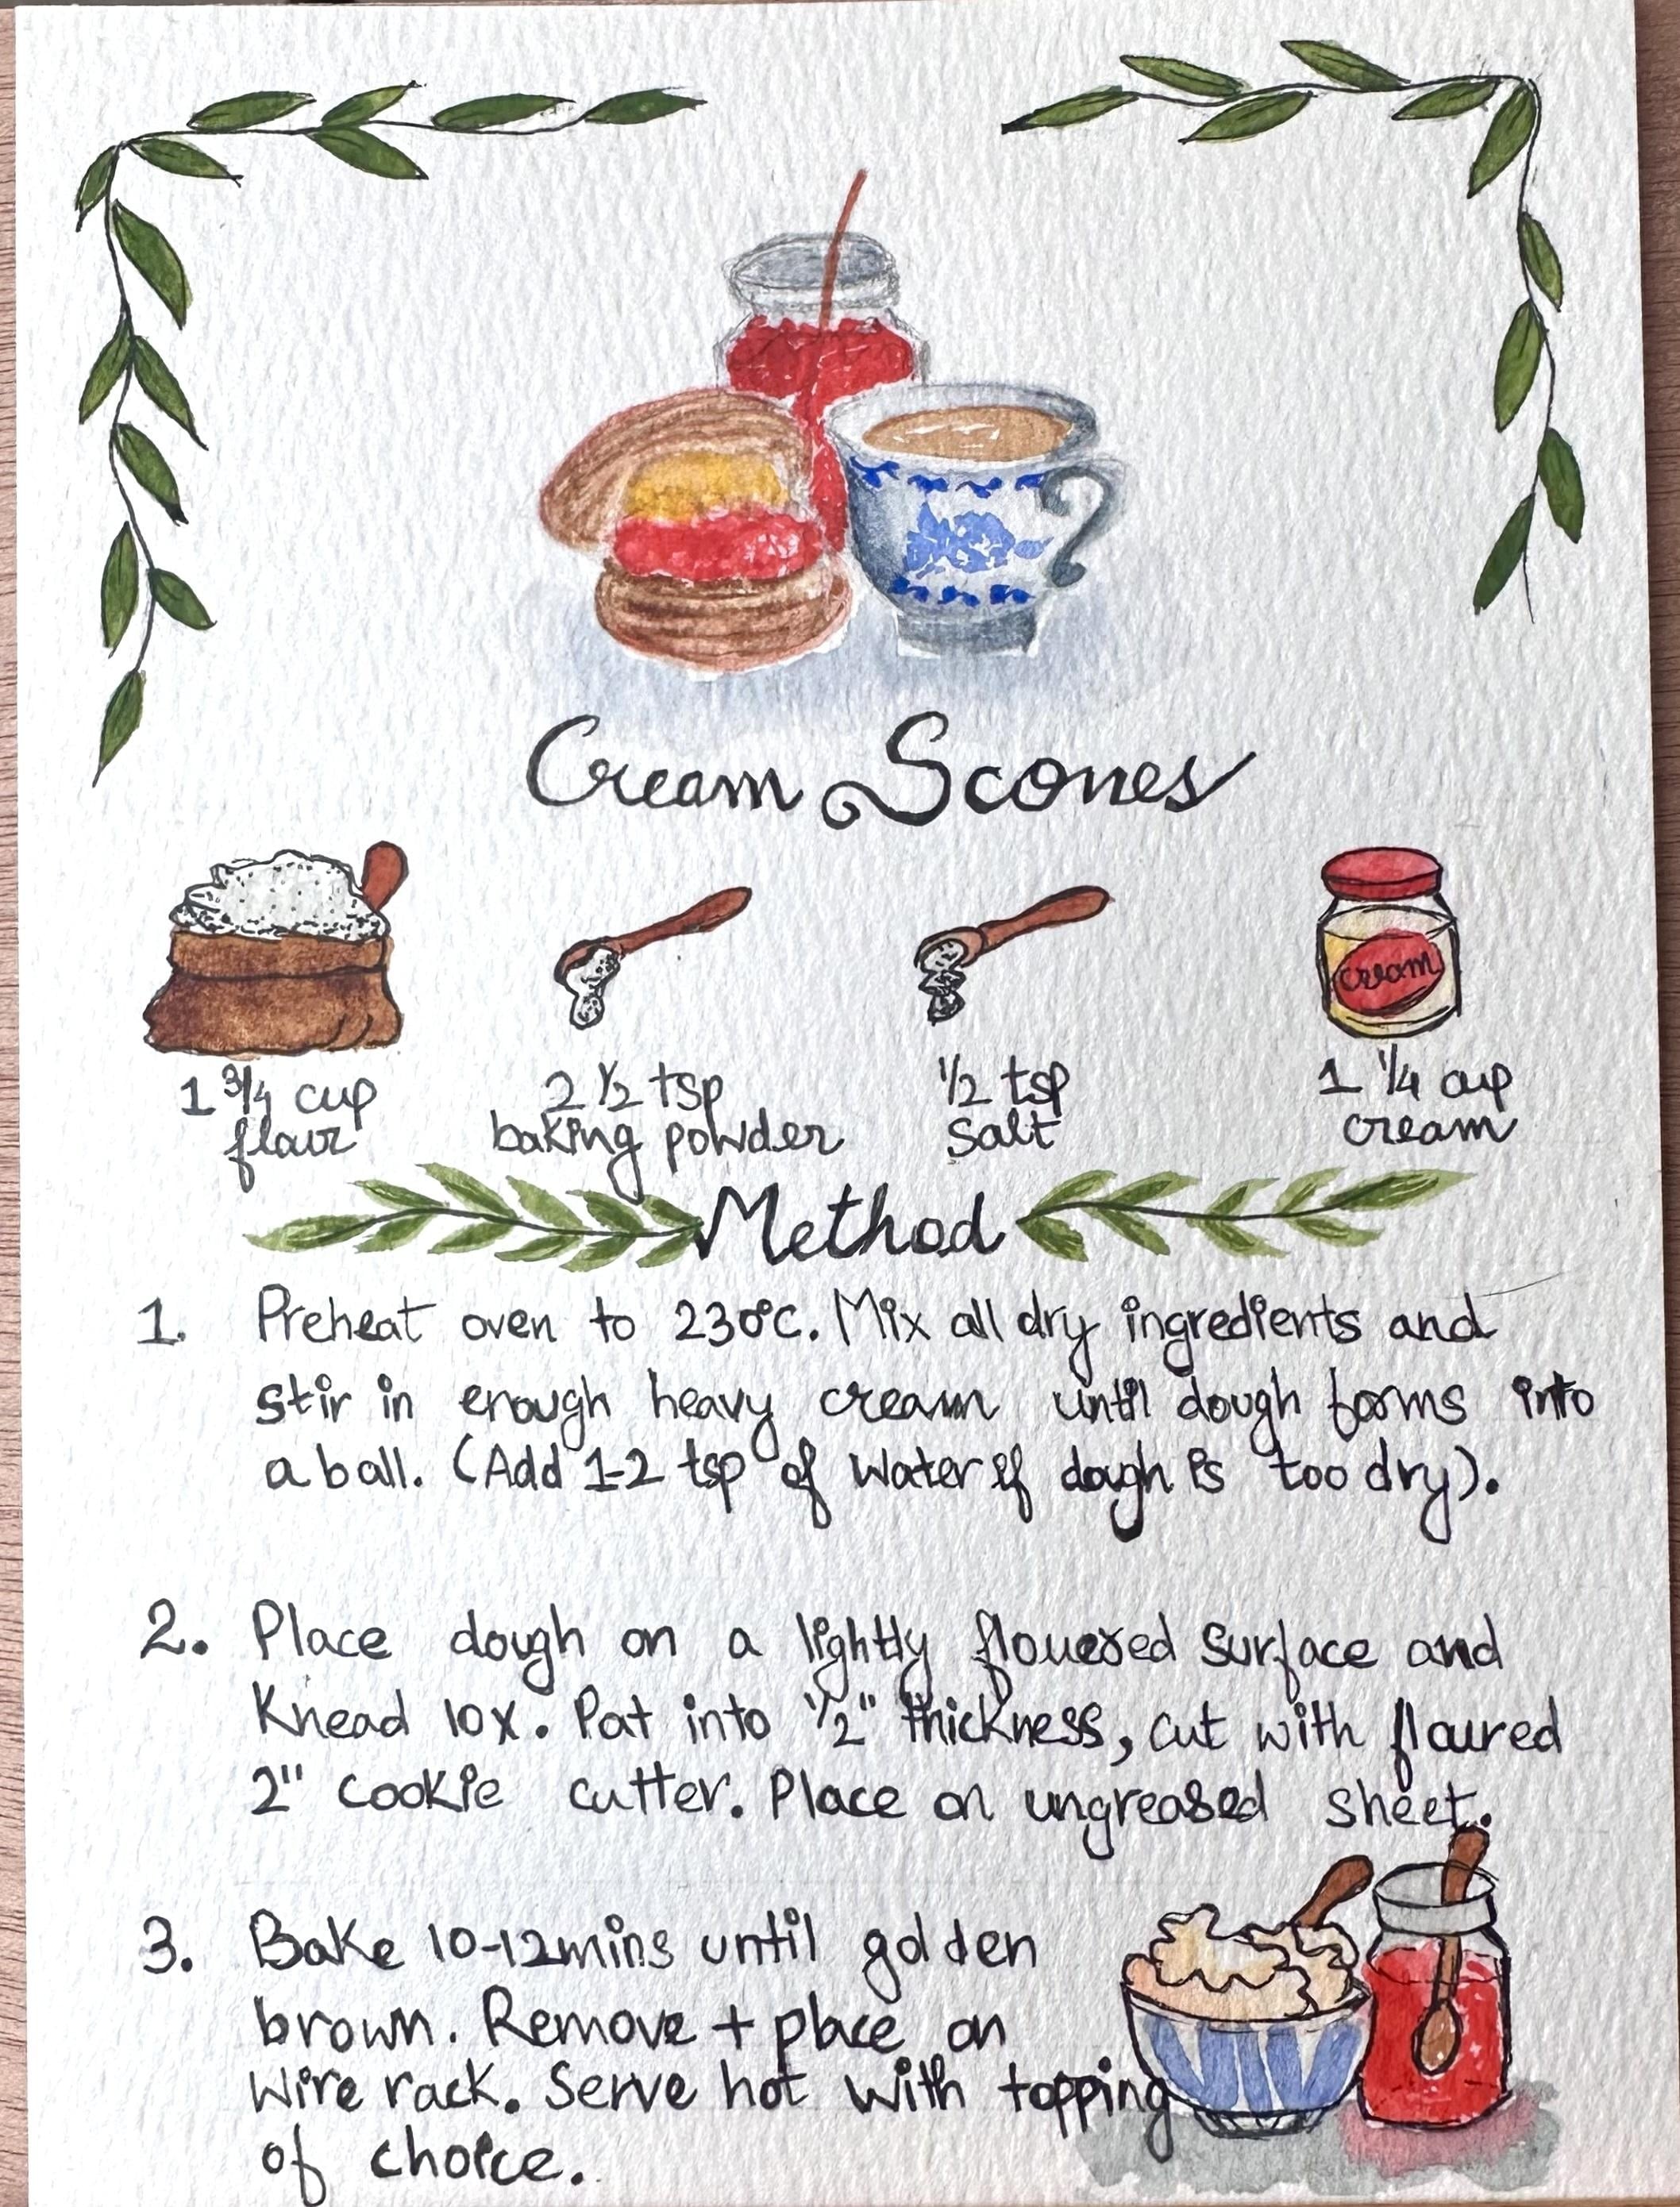 Cream Scones
cream
1 3/4 cup
flour
2 1/2 tsp
baking powder
1/2 tsp
salt
1 1/4 cup
cream
Method
1. Preheat oven to 230°C. Mix all dry ingredients and
stir in enough heavy cream until dough forms into
a ball. (Add 1-2 tsp of water if dough is too dry).
2. Place dough on a lightly flouered surface and
Knead 10x. Pat into 1/2" thickness, cut with floured
2" cookie cutter. Place on ungreased sheet.
3. Bake 10-12mins until golden
brown. Remove + place on
wire rack. Serve hot with topping
of choice.